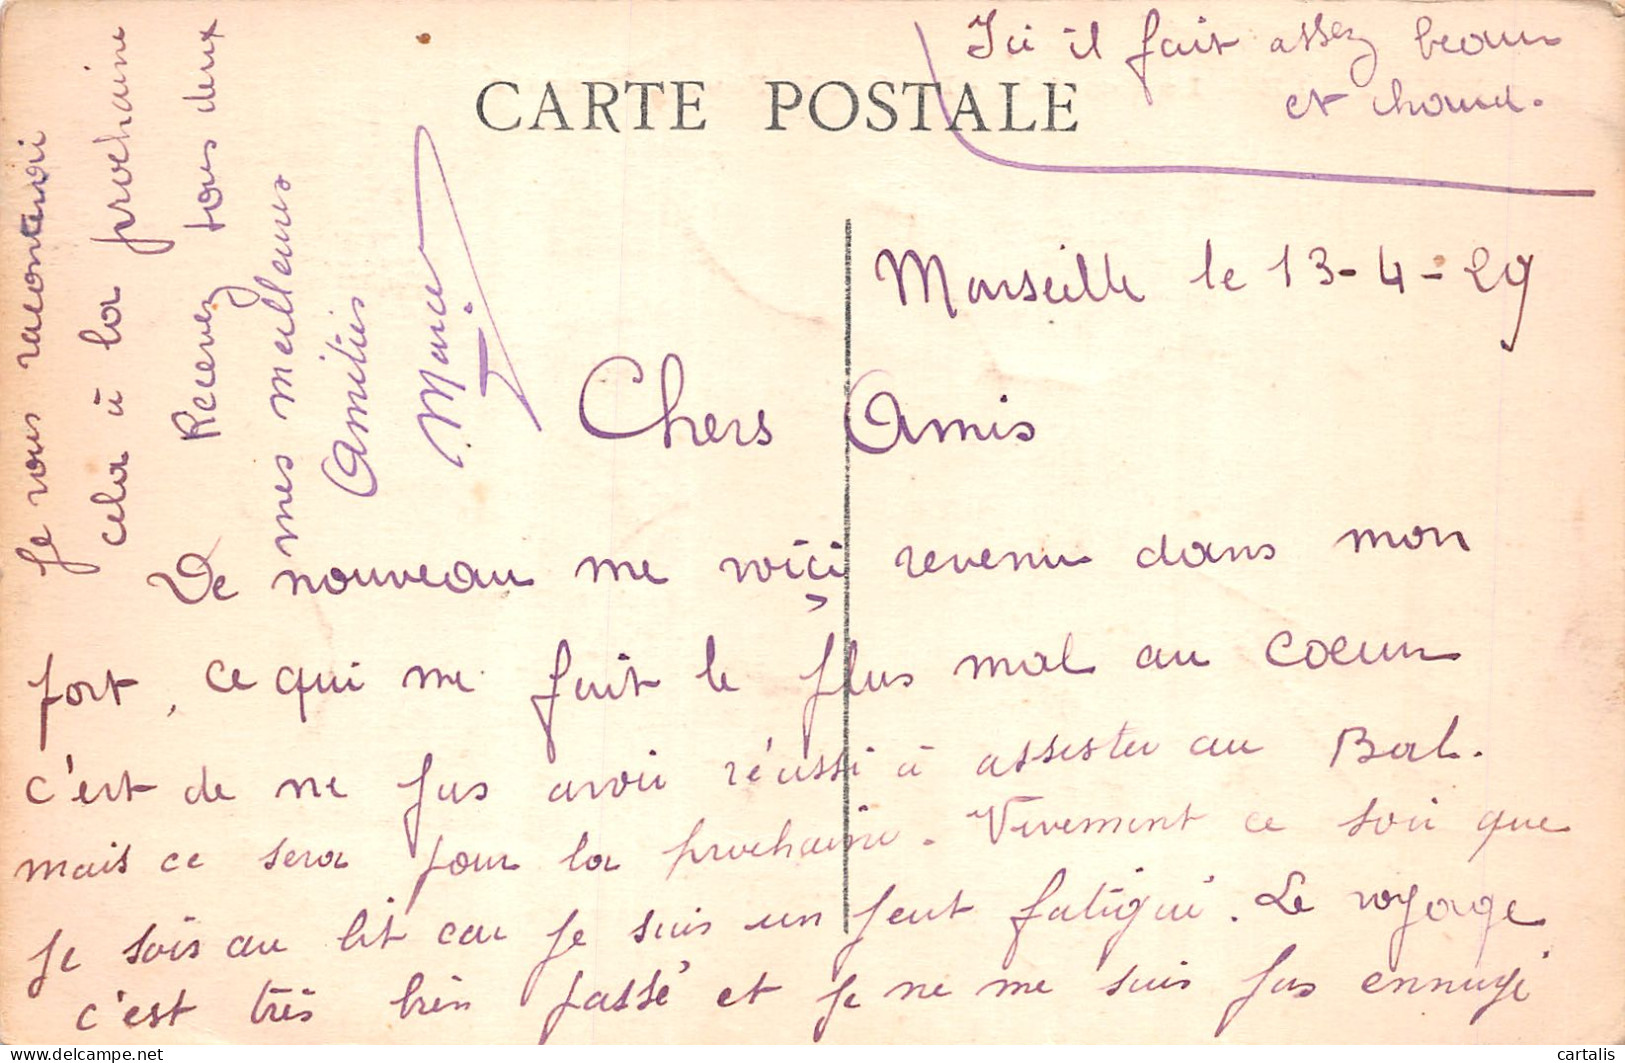 CARTE POSTALE
Ici il fait assez beau
et chaud.
Marseille le 13-4-29
Chers Amis
De nouveau me voici revenu dans mon
fort, ce qui me fait le plus mal au coeur
c'est de ne pas avoir réussi à assister au Bal.
mais ce sera pour la prochaine. Vivement ce soir que
je sois au lit car je suis un peut fatigué. Le voyage
c'est très bien passé et je ne me suis pas ennuyé
Je vous raconterai
cela à la prochaine
Recevez tous deux
mes meilleures
Amitiés
cartalis
delcampe.net